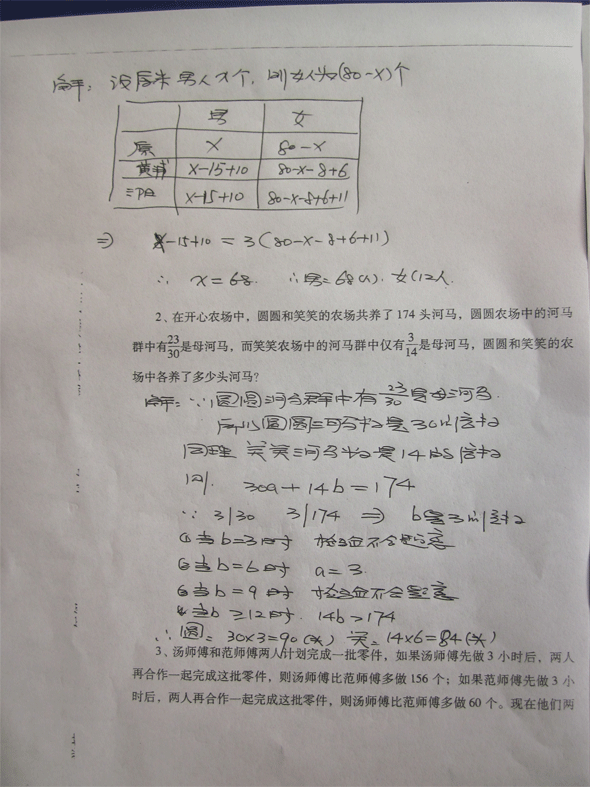 解: 设原来男人x个, 则女人为(80-x)个
男 女
原 x 80-x
黄浦 x-15+10 80-x-8+6
三阳 x-15+10 80-x-8+6+11
⇒ x-15+10=3(80-x-8+6+11)
∴ x=68. ∴男=68(人). 女12人.
2、在开心农场中，圆圆和笑笑的农场共养了 174 头河马，圆圆农场中的河马
群中有23/30是母河马，而笑笑农场中的河马群中仅有3/14是母河马，圆圆和笑笑的农
场中各养了多少头河马?
解: ∵圆圆河马群中有23/30是母河马.
所以圆圆河马数是30的倍数
同理 笑笑河马数是14的倍数
则. 30a+14b=174
∵ 3|30 3|174 ⇒ b是3的倍数
① 当b=3时 检验不合题意
② 当b=6时 a=3.
③ 当b=9时 检验不合题意
④ 当b≥12时. 14b>174
∴ 圆=30×3=90(头) 笑=14×6=84(头)
3、汤师傅和范师傅两人计划完成一批零件，如果汤师傅先做 3 小时后，两人
再合作一起完成这批零件，则汤师傅比范师傅多做 156 个；如果范师傅先做 3 小
时后，两人再合作一起完成这批零件，则汤师傅比范师傅多做 60 个。现在他们两